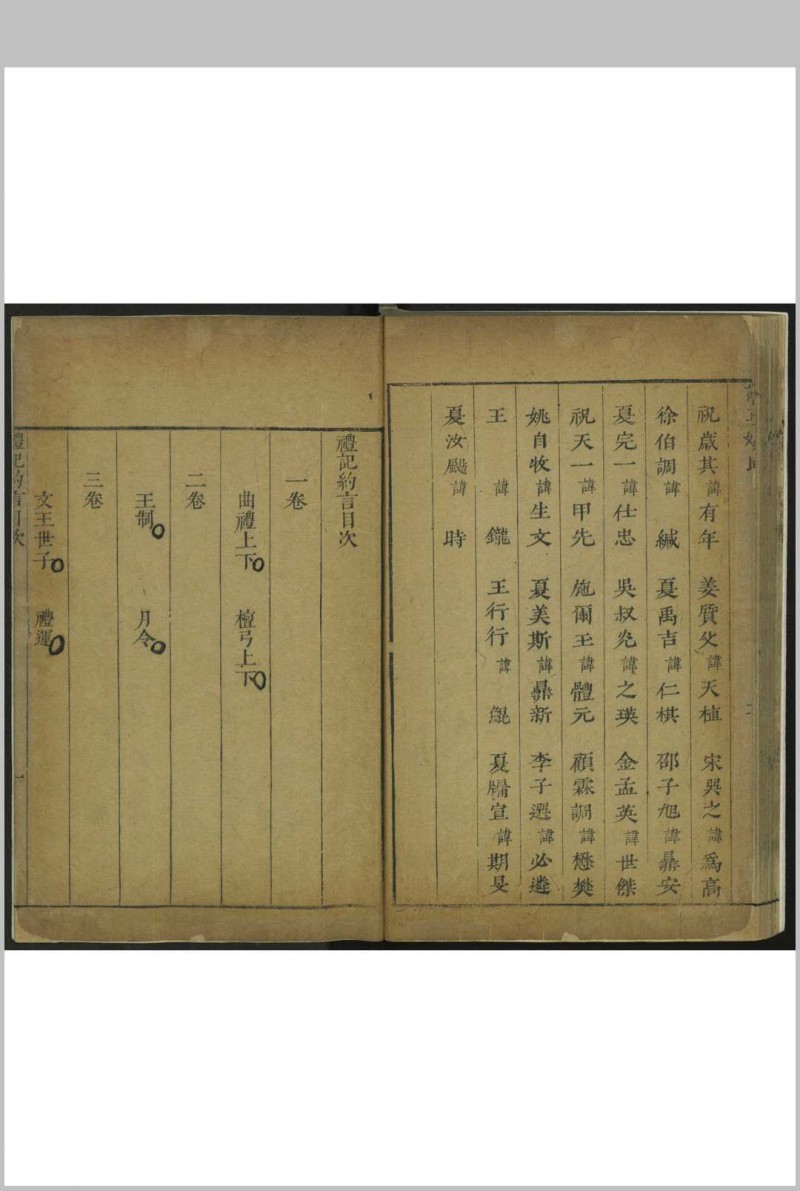 祝歲其諱有年 姜質父諱天植 宋巽之諱爲高
徐伯調諱緘 夏禹吉諱仁棋 邵子旭諱鼎安
夏完一諱仕忠 吳叔光諱之瑛 金孟英諱世傑
祝天一諱甲先 施爾王諱體元 顧霖調諱懋樊
姚自牧諱生文 夏美斯諱鼎新 李子選諱必遴
王 諱鑨 王行行諱鯤 夏牗宣諱期旻
夏汝颺諱時
二
禮記約言目次
一卷
曲禮上下 檀弓上下
二卷
王制 月令
三卷
文王世子 禮運
禮記約言目次
一